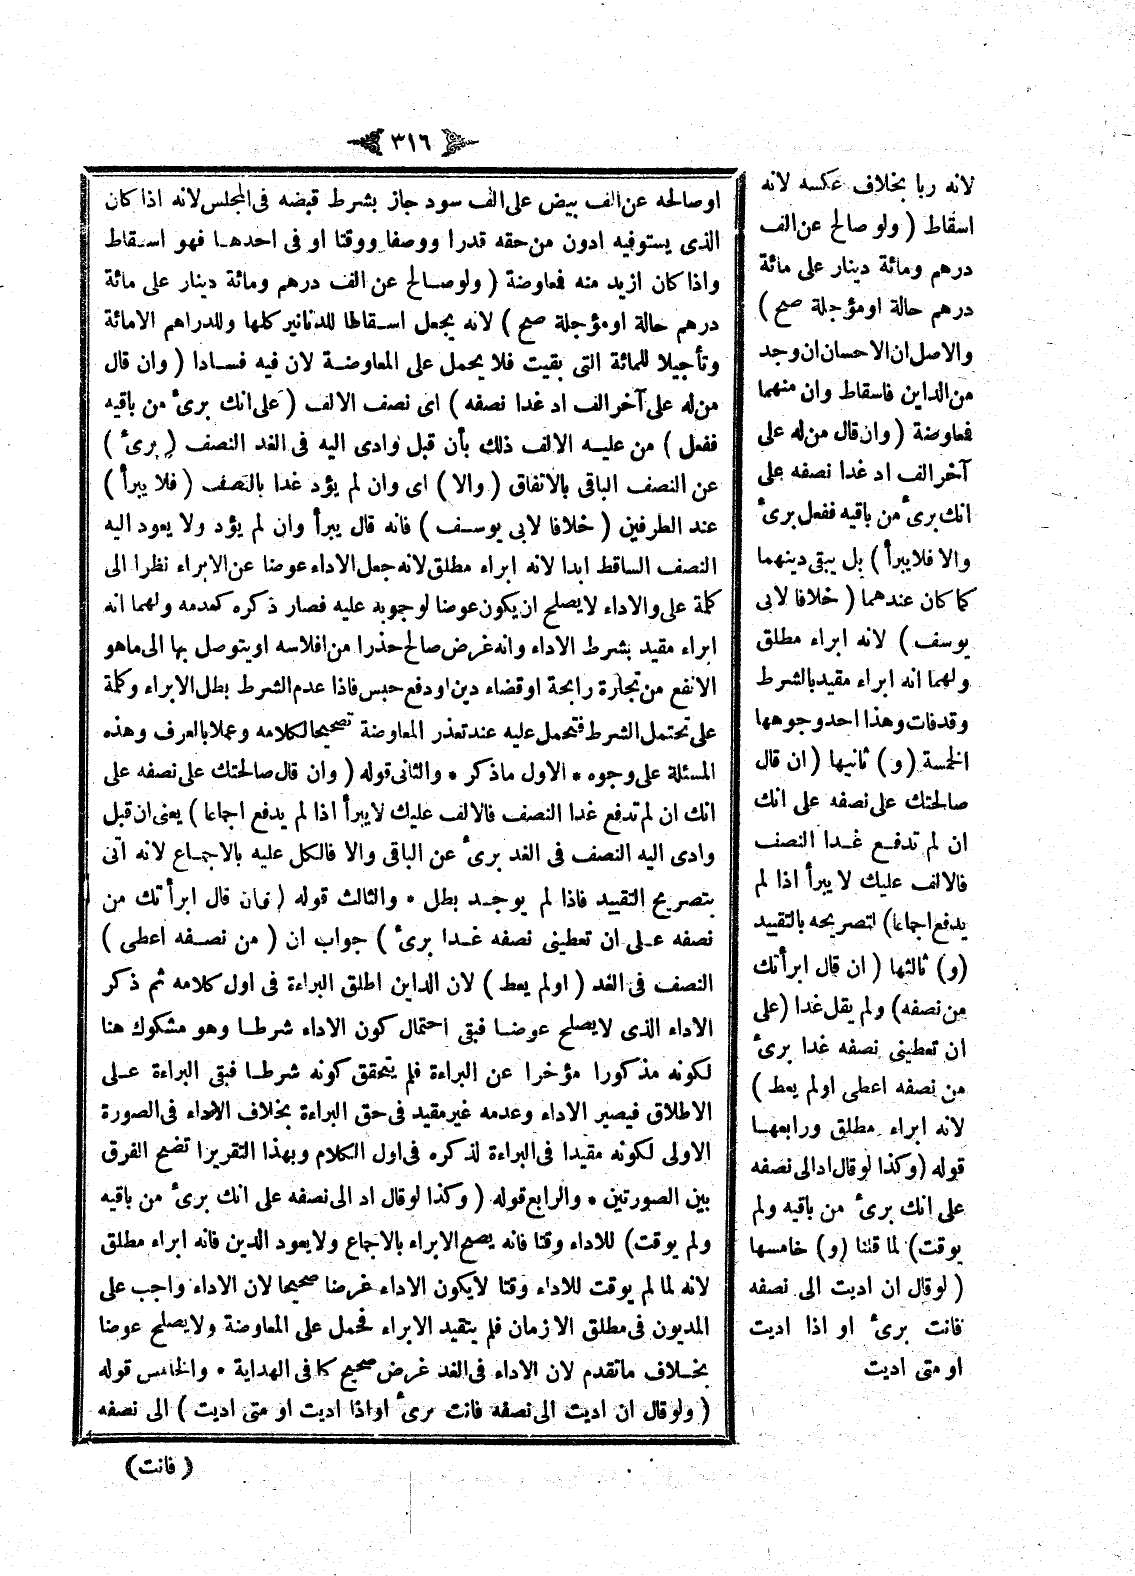 ٣١٦
اوصالحه عن الف بيض على الف سود جاز بشرط قبضه فى المجلس لانه اذا كان
الذى يستوفيه ادون من حقه قدرا ووصفا ووقتا او فى احدها فهو اسقاط
واذا كان ازيد منه فعاوضة ( ولو صالح عن الف درهم ومائة دينار على مائة
درهم حالة او مؤجلة صح ) لانه يجعل اسقاطا للدنانير كلها وللدراهم الامائة
وتأجيلا للمائة التى بقيت فلا يحمل على المعاوضة لان فيه فسادا ( وان قال
من له على آخر الف اد غدا نصفه ) اى نصف الالف ( على انك برئ من باقيه
ففعل ) من عليه الالف ذلك بأن قبل وادى اليه فى الغد النصف ( برئ )
عن النصف الباقى بالاتفاق ( والا ) اى وان لم يؤد غدا بالنصف ( فلا يبرأ )
عند الطرفين ( خلافا لابى يوسف ) فانه قال يبرأ وان لم يؤد ولا يعود اليه
النصف الساقط ابدا لانه ابراء مطلق لانه جعل الاداء عوضا عن الابراء نظرا الى
كلمة على والاداء لا يصلح ان يكون عوضا لوجوبه عليه فصار ذكره كعدمه ولهما انه
ابراء مقيد بشرط الاداء وانه غرض صالح حذرا من افلاسه او يتوصل بها الى ماهو
الانفع من تجارة رابحة او قضاء دين او دفع حبس فاذا عدم الشرط بطل الابراء وكلمة
على تحتمل الشرط فتحمل عليه عند تعذر المعاوضة تصحيحا لكلامه وعملا بالعرف وهذه
المسئلة على وجوه * الاول ماذكر * والثانى قوله ( وان قال صالحتك على نصفه على
انك ان لم تدفع غدا النصف فالالف عليك لايبرأ اذا لم يدفع اجماعا ) يعنى ان قبل
وادى اليه النصف فى الغد برئ عن الباقى والا فالكل عليه بالاجماع لانه اتى
بتصريح التقييد فاذا لم يوجد بطل * والثالث قوله ( فان قال ابرأتك من
نصفه على ان تعطينى نصفه غدا برئ ) جواب ان ( من نصفه اعطى )
النصف فى الغد ( اولم يعط ) لان الداين اطلق البراءة فى اول كلامه ثم ذكر
الاداء الذى لايصلح عوضا فبقى احتمال كون الاداء شرطا وهو مشكوك هنا
لكونه مذكورا مؤخرا عن البراءة فلم يتحقق كونه شرطا فبقى البراءة على
الاطلاق فيصير الاداء وعدمه غير مقيد فى حق البراءة بخلاف الاداء فى الصورة
الاولى لكونه مقيدا فى البراءة لذكره فى اول الكلام وبهذا التقريرا تضح الفرق
بين الصورتين * والرابع قوله ( وكذا لوقال اد الى نصفه على انك برئ من باقيه
ولم يوقت) للاداء وقتا فانه يصح الابراء بالاجماع ولا يعود الدين فانه ابراء مطلق
لانه لما لم يوقت للاداء وقتا لايكون الاداء غرضا صحيحا لان الاداء واجب على
المديون فى مطلق الازمان فلم يتقيد الابراء فحمل على المعاوضة ولا يصلح عوضا
بخلاف ماتقدم لان الاداء فى الغد غرض صحيح كا فى الهداية * والخامس قوله
( ولو قال ان اديت الى نصفه فانت برئ او اذا اديت او متى اديت ) الى نصفه
( فانت )
لانه ربا بخلاف عكسه لانه
اسقاط ( ولو صالح عن الف
درهم ومائة دينار على مائة
درهم حالة او مؤجلة صح )
والاصل ان الاحسان ان وجد
من الداين فاسقاط وان منهما
فعاوضة ( وان قال من له على
آخر الف اد غدا نصفه على
انك برئ من باقيه ففعل برئ
والا فلا يبرأ ) بل يبقى دينهما
كما كان عندهما ( خلافا لابى
يوسف ) لانه ابراء مطلق
ولهما انه ابراء مقيد بالشرط
وقد فات وهذا احد وجوهها
الخمسة ( و ) ثانيها ( ان قال
صالحتك على نصفه على انك
ان لم تدفع غدا النصف
فالالف عليك لا يبرأ اذا لم
يدفع اجماعا) لتصريحه بالتقييد
(و) ثالثها ( ان قال ابرأتك
من نصفه) ولم يقل غدا (على
ان تعطينى نصفه غدا برئ
من نصفه اعطى اولم يعط )
لانه ابراء مطلق ورابعها
قوله (وكذا لوقال اد الى نصفه
على انك برئ من باقيه ولم
يوقت) لما قلنا (و) خامسها
( لوقال ان اديت الى نصفه
فانت برئ او اذا اديت
او متى اديت